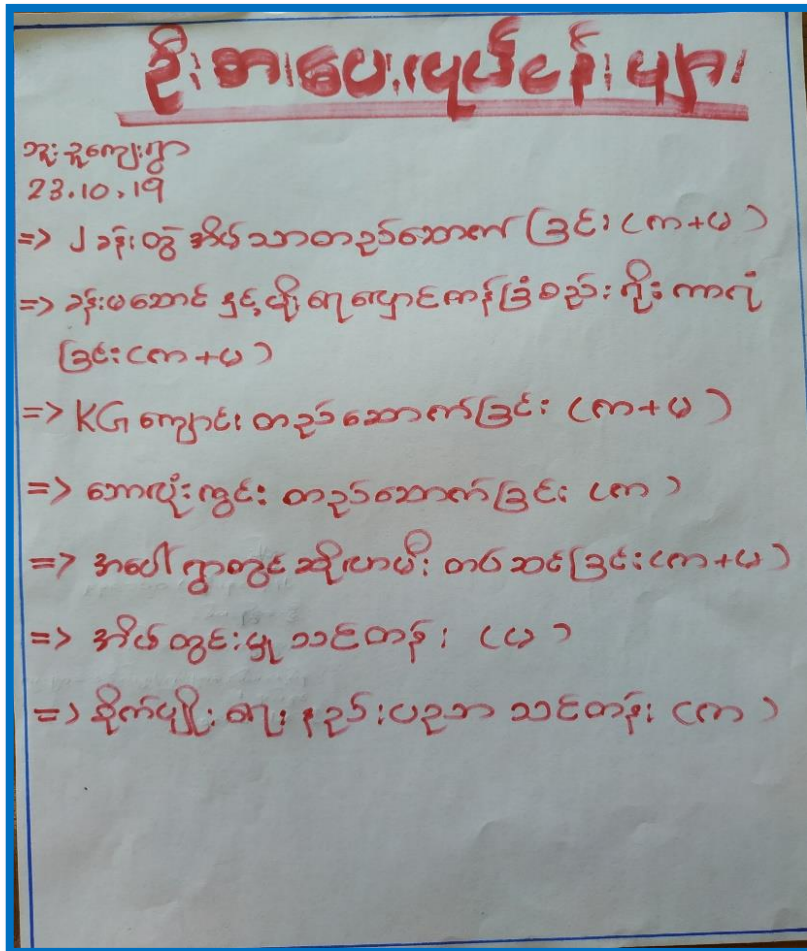 ဦးစားပေးလုပ်ငန်းများ
ဘူးခူကျေးရွာ
23.10.19
=> ၂ ခန်းတွဲ အိမ်သာတည်ဆောက်ခြင်း (က+မ)
=> ခန်းမဆောင် နှင့် မိုးရေလှောင်ကန် ခြံစည်းရိုး ကာရံ
ခြင်း (က+မ)
=> KG ကျောင်း တည်ဆောက်ခြင်း (က+မ)
=> ဘောလုံးကွင်း တည်ဆောက်ခြင်း (က)
=> အပေါ်ရွာတွင် ဆိုလာမီး တပ်ဆင်ခြင်း (က+မ)
=> အိမ်တွင်းမှု သင်တန်း (မ)
=> စိုက်ပျိုးရေး နည်းပညာ သင်တန်း (က)